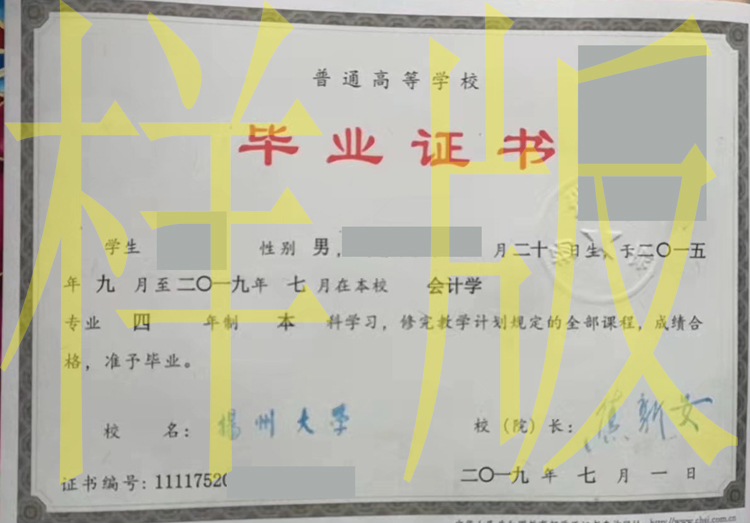 样版
普通高等学校
毕业证书
学生 性别 男， 月二十 日生，于二〇一五
年 九 月至二〇一九年 七 月在本校 会计学
专业 四 年制 本 科学习，修完教学计划规定的全部课程，成绩合
格，准予毕业。
校 名：扬州大学 校（院）长：焦新安
证书编号：11117520 二〇一九 年 七 月 一 日